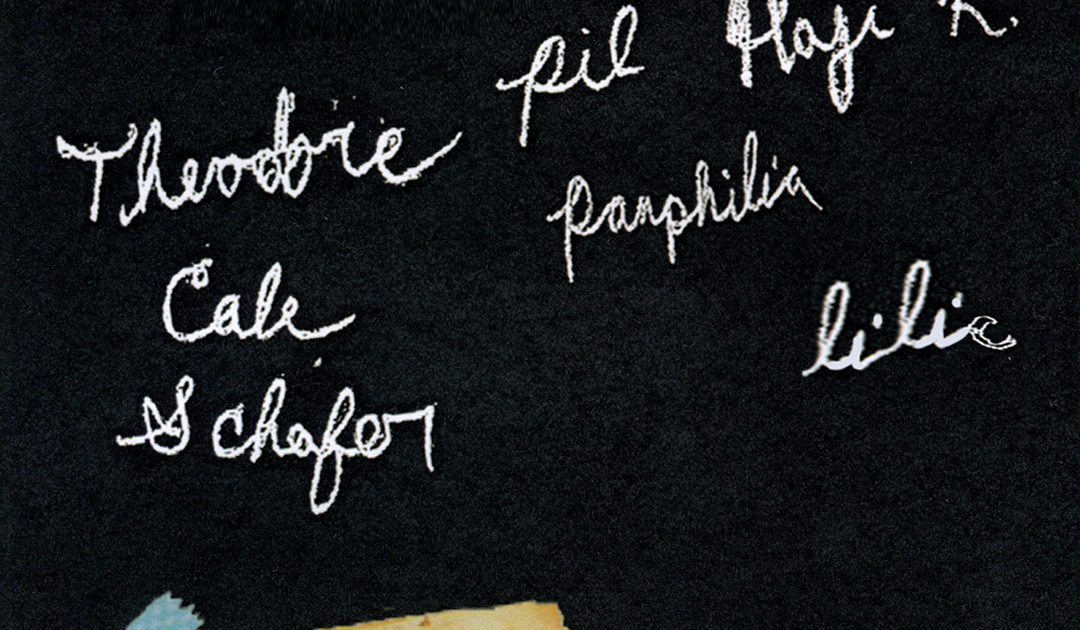 pil
Theodore
panphilia
Cale
lilic
Schafer